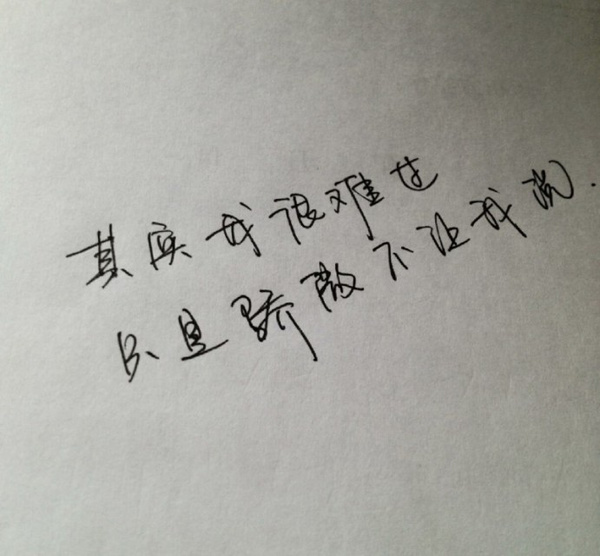 其实我很难过
只是骄傲不让我说.